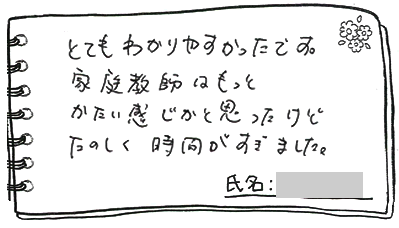 とてもわかりやすかったです。
家庭教師はもっと
かたい感じかと思ったけど
たのしく時間がすぎました。
氏名: